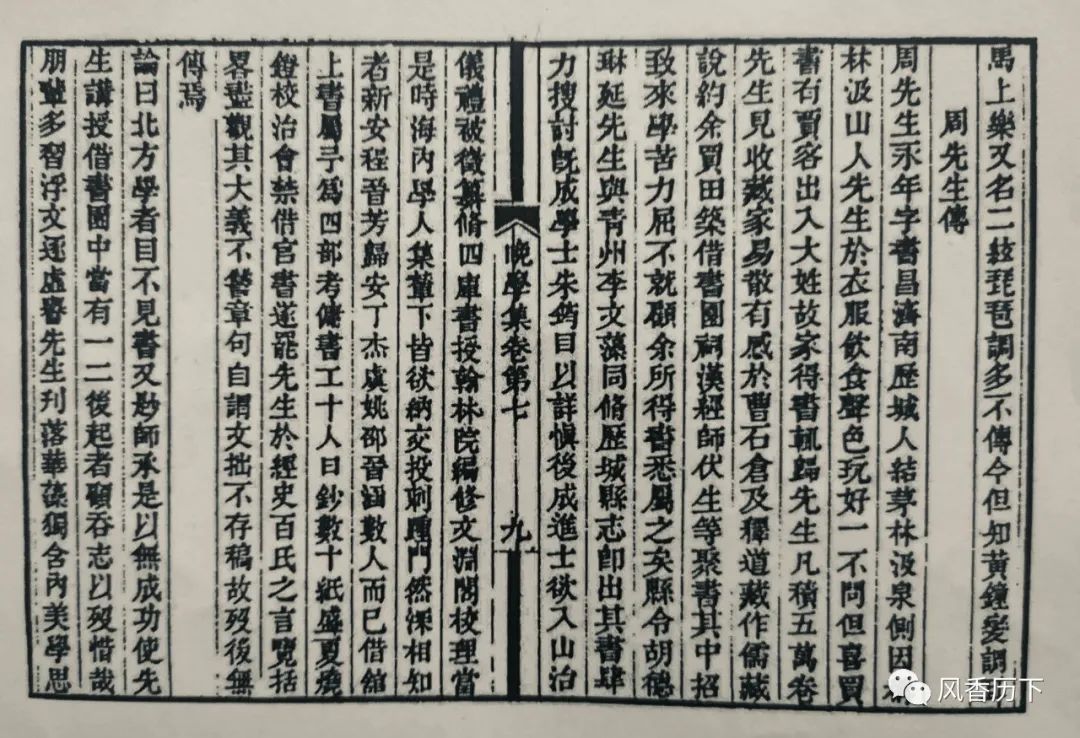 馬上樂又名二絃琵琶調多不傳今但知黃鐘變調
周先生傳
周先生永年字書昌濟南歷城人結茅林汲泉側因
林汲山人先生於衣服飲食聲色玩好一不問但喜買
書有賈客出入大姓故家得書輒歸先生凡積五萬卷
先生見收藏家易散有感於曹石倉及釋道藏作儒藏
說約余買田築借書園祠漢經師伏生等聚書其中招
致來學苦力屈不就顧余所得書悉屬之矣縣令胡德
琳延先生與青州李文藻同脩歷城縣志卽出其書肆
力搜討旣成學士朱筠目以詳愼後成進士欲入山治
晚學集卷第七
九
儀禮被徵纂脩四庫書授翰林院編修文淵閣校理當
是時海內學人集輦下皆欲納交投刺踵門然深相知
者新安程晉芳歸安丁杰虞姚邵晉涵數人而已借館
上書屬予爲四部考傭書工十人日鈔數十紙盛夏燒
鐙校治會禁借官書遂罷先生於經史百氏之言覽括
畧盡觀其大義不讐章句自謂文拙不存稿故歿後無
傳焉
論曰北方學者目不見書又尠師承是以無成功使先
生講授借書園中當有一二後起者顧吞志以歿惜哉
朋輩多習浮文逐虛譽先生刋落華藻獨含內美學思
风香历下